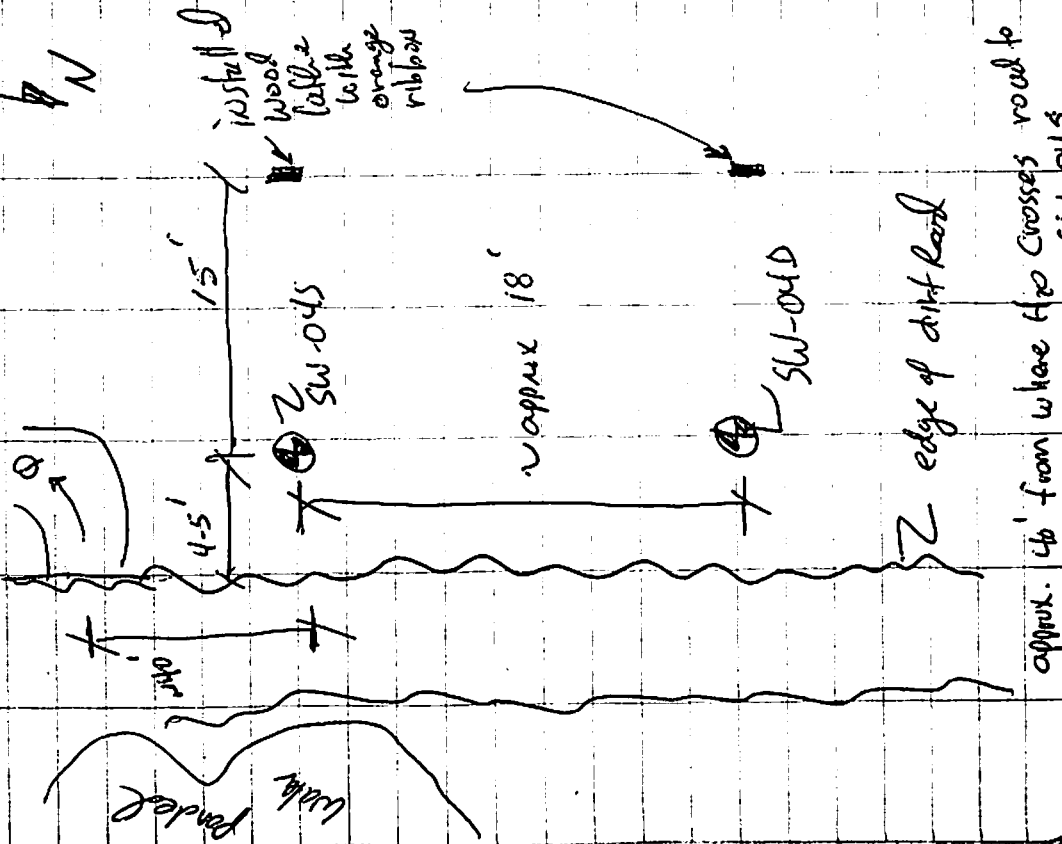 N
installed
wood
lathe
with
orange
ribbon
15'
Q
SW-04S
4-5'
~approx 18'
SW-04D
edge of dirt Road
ponded
water
approx. 46' from where H2O Crosses road to